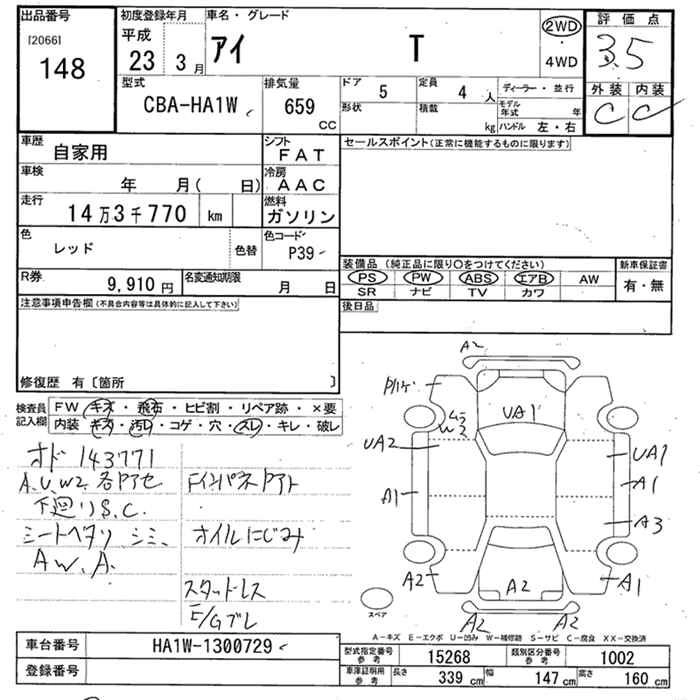 出品番号
[2066]
148
初度登録年月
平成
23 3 月
車名・グレード
アイ T
2WD
・
4WD
評価点
3.5
外装 内装
C C
型式
CBA-HA1W
排気量
659
CC
ドア 5
形状
定員 4 人
積載 kg
ディーラー・並行
モデル年式 年
ハンドル 左・右
車歴
自家用
シフト
FAT
車検
年 月( 日)
冷房
AAC
走行
14万3千770 km
燃料
ガソリン
色
レッド
色替
色コード
P39
R券
9,910 円
名変通知期限
月 日
セールスポイント(正常に機能するものに限ります)
装備品(純正品に限り○をつけてください)
PS PW ABS エアB AW
SR ナビ TV カワ
新車保証書
有・無
後日品
注意事項申告欄(不具合内容等は具体的に記入して下さい)
修復歴 有〔箇所 〕
検査員
記入欄
FW キズ・飛石・ヒビ割・リペア跡・×要
内装 キズ・汚レ・コゲ・穴・スレ・キレ・破レ
オド 143771
A.U.W2 各アセ
下廻りS.C.
シートヘタリ シミ、
A.W.A.
オイルにじみ
スタッドレス
E/Gブレ
A2
UA1
W3
UA2
UA1
A1
A1
A3
A2
A2
A1
A2
A2
スペア
A-キズ E-エクボ U-凹み W-補修跡 S-サビ C-腐食 XX-交換済
車台番号
HA1W-1300729
登録番号
型式指定番号
参考
15268
類別区分番号
参考
1002
車庫証明用
参考
長さ 339 cm 幅 147 cm 高さ 160 cm